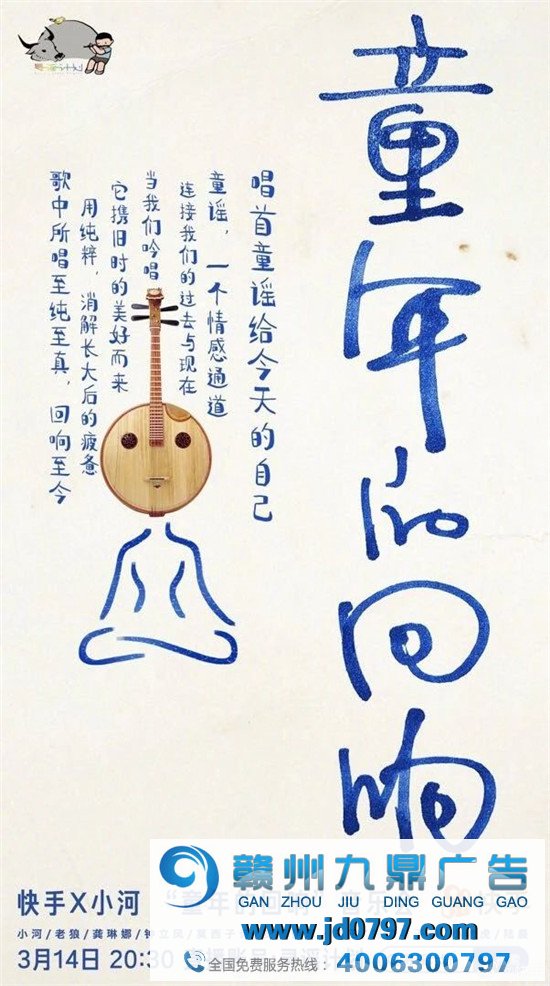 童年的回响
唱首童谣给今天的自己
童谣，一个情感通道
连接我们的过去与现在
当我们吟唱
它携旧时的美好而来
用纯粹，消解长大后的疲惫
歌中所唱至纯至真，回响至今
快手X小河 “童年的回响”音乐会 快手
小河/老狼/龚琳娜/钟立风/莫西子
3月14日 20:30
赣州九鼎广告
GAN ZHOU JIU DING GUANG GAO
www.jd0797.com
全国免费服务热线：4006300797